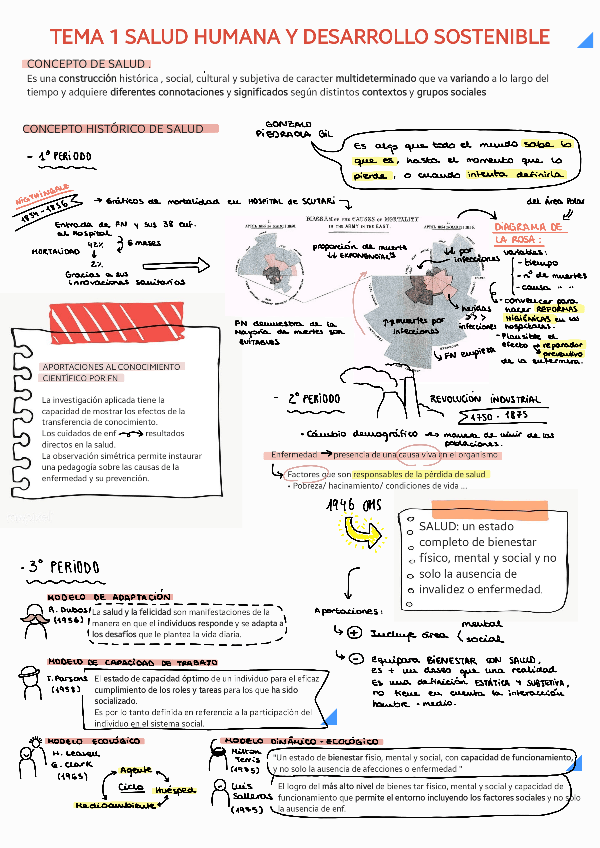 TEMA 1 SALUD HUMANA Y DESARROLLO SOSTENIBLE
CONCEPTO DE SALUD .
Es una construcción histórica , social, cultural y subjetiva de caracter multideterminado que va variando a lo largo del
tiempo y adquiere diferentes connotaciones y significados según distintos contextos y grupos sociales
CONCEPTO HISTÓRICO DE SALUD
GONZALO
PIEDROLA GIL
Es algo que todo el mundo sabe lo
que es, hasta el momento que lo
pierde, o cuando intenta definirla
- 1º PERIODO
NIGTHINGALE
1854-1856
→ Gráficos de mortalidad en HOSPITAL DE SCUTARI
del área Polar
DIAGRAM OF THE CAUSES OF MORTALITY
IN THE ARMY IN THE EAST.
DIAGRAMA DE
LA ROSA :
Entrada de FN y sus 38 enf.
al Hospital
MORTALIDAD
42%
6 meses
2%
Gracias a sus
innovaciones sanitarias
proporción de muerte
↓↓ EXPONENCIALS
↓↓ por
infecciones
variables:
- tiempo
- nº de muertes
- causa " "
- convencer para
hacer REFORMAS
HIGIÉNICAS en los
hospitales.
- Plausible el
efecto → reparador
→ preventivo
de la enfermera.
heridas
>>>
infecciones
muertes por
infecciones
FN empieza
FN demuestra de la
mayoría de mertes son
EVITABLES
APORTACIONES AL CONOCIMIENTO
CIENTÍFICO POR FN
La investigación aplicada tiene la
capacidad de mostrar los efectos de la
transferencia de conocimiento.
Los cuidados de enf → resultados
directos en la salud.
La observación simétrica permite instaurar
una pedagogía sobre las causas de la
enfermedad y su prevención.
- 2º PERIODO
REVOLUCIÓN INDUSTRIAL
1750 - 1875
• Cambio demográfico es manera de vivir de las
poblaciones.
Enfermedad → presencia de una causa viva en el organismo
Factores que son responsables de la pérdida de salud
• Pobreza/ hacinamiento/ condiciones de vida ...
1946 OMS
SALUD: un estado
completo de bienestar
físico, mental y social y no
solo la ausencia de
invalidez o enfermedad.
Aportaciones:
+ Incluye área
mental
social
- Equipara BIENESTAR CON SALUD,
es + un deseo que una realidad
Es una definición ESTÁTICA Y SUBJETIVA,
no tiene en cuenta la interacción
hombre - medio.
- 3º PERIODO
MODELO DE ADAPTACIÓN
R. Dubos
(1956)
La salud y la felicidad son manifestaciones de la
manera en que el individuos responde y se adapta a
los desafíos que le plantea la vida diaria.
MODELO DE CAPACIDAD DE TRABAJO
T. Parsons
(1958)
El estado de capacidad óptimo de un individuo para el eficaz
cumplimiento de los roles y tareas para los que ha sido
socializado.
Es por lo tanto definida en referencia a la participación del
individuo en el sistema social.
MODELO ECOLÓGICO
H. Leavell
G. Clark
(1965)
Agente
Ciclo
Huésped
Medioambiente
MODELO DINÁMICO - ECOLÓGICO
Milton
Terris
(1975)
"Un estado de bienestar fisio, mental y social, con capacidad de funcionamiento,
y no solo la ausencia de afecciones o enfermedad "
Luis
Salleras
(1985)
El logro del más alto nivel de bienes tar físico, mental y social y capacidad de
funcionamiento que permite el entorno incluyendo los factores sociales y no solo
la ausencia de enf.